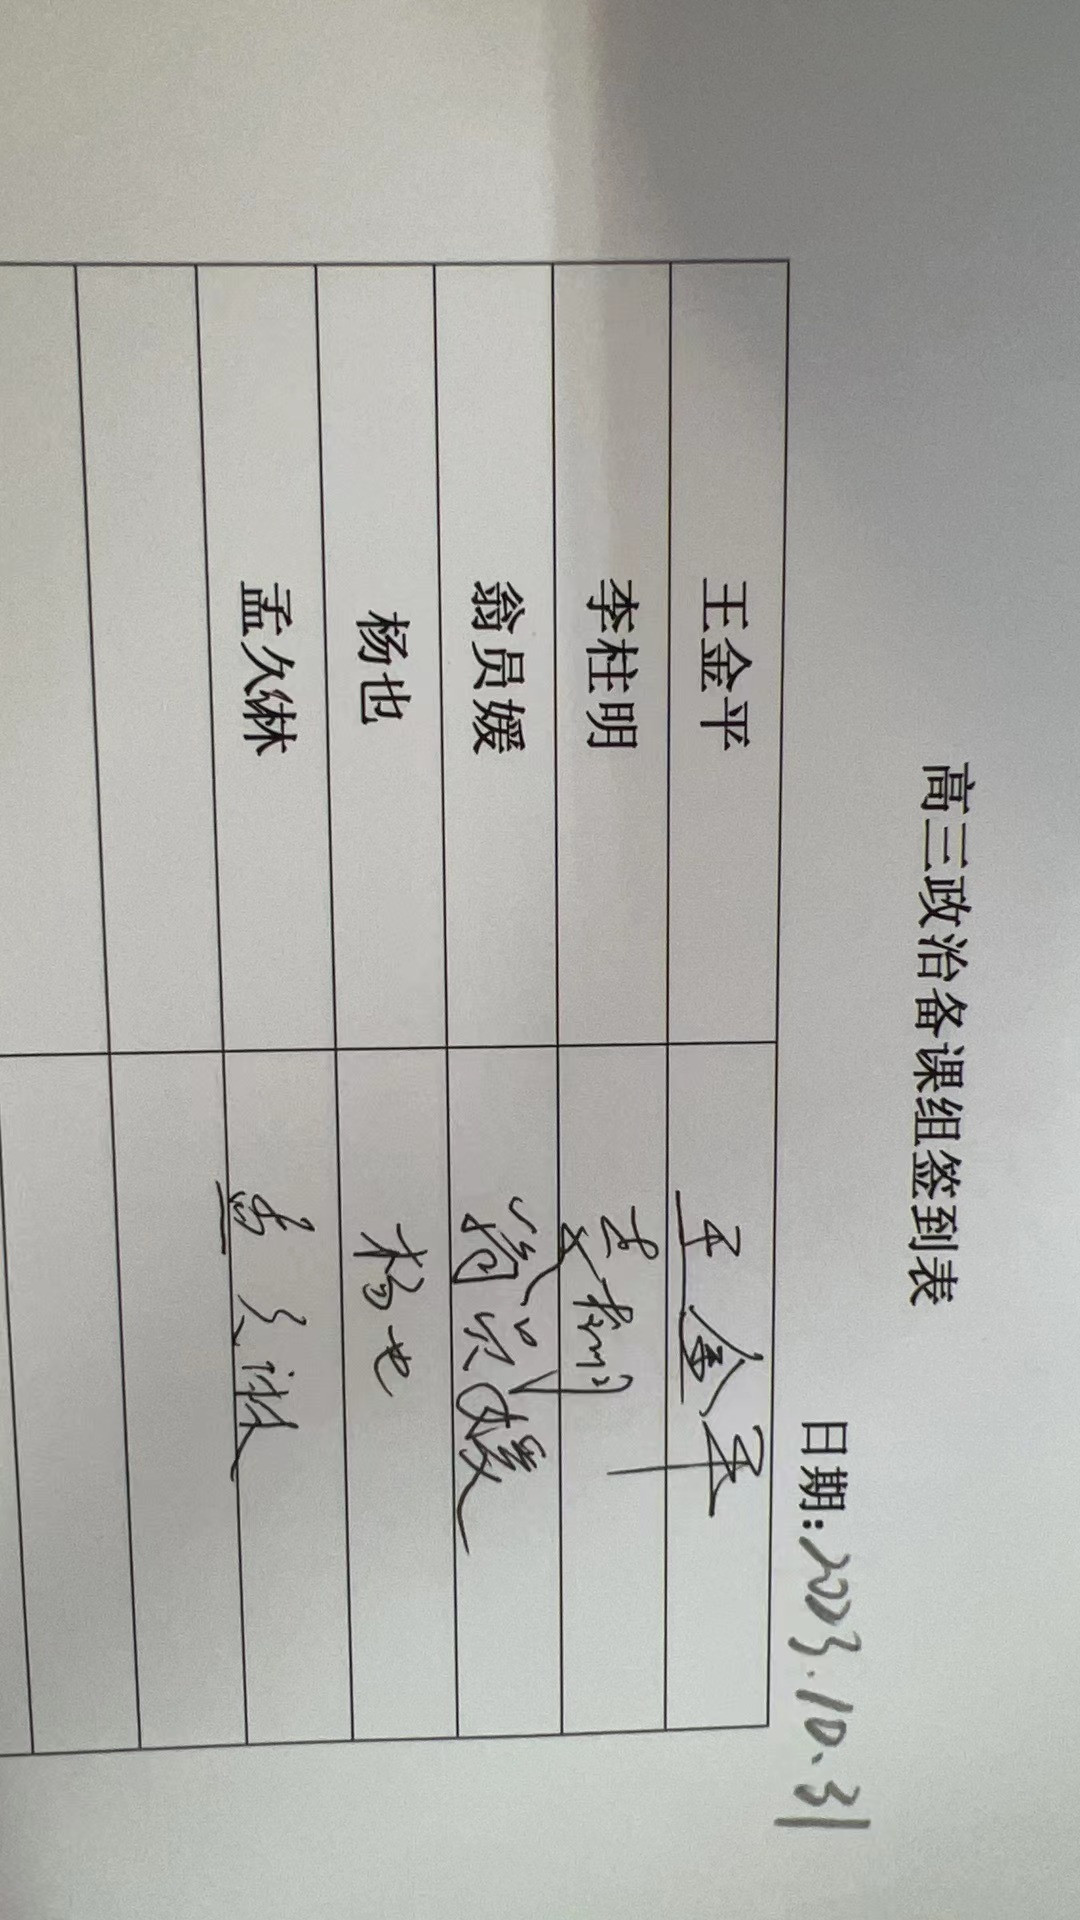 高三政治备课组签到表
日期:2023.10.31
王金平 王金平
李柱明 李柱明
翁员媛 翁员媛
杨也 杨也
孟久綝 孟久綝